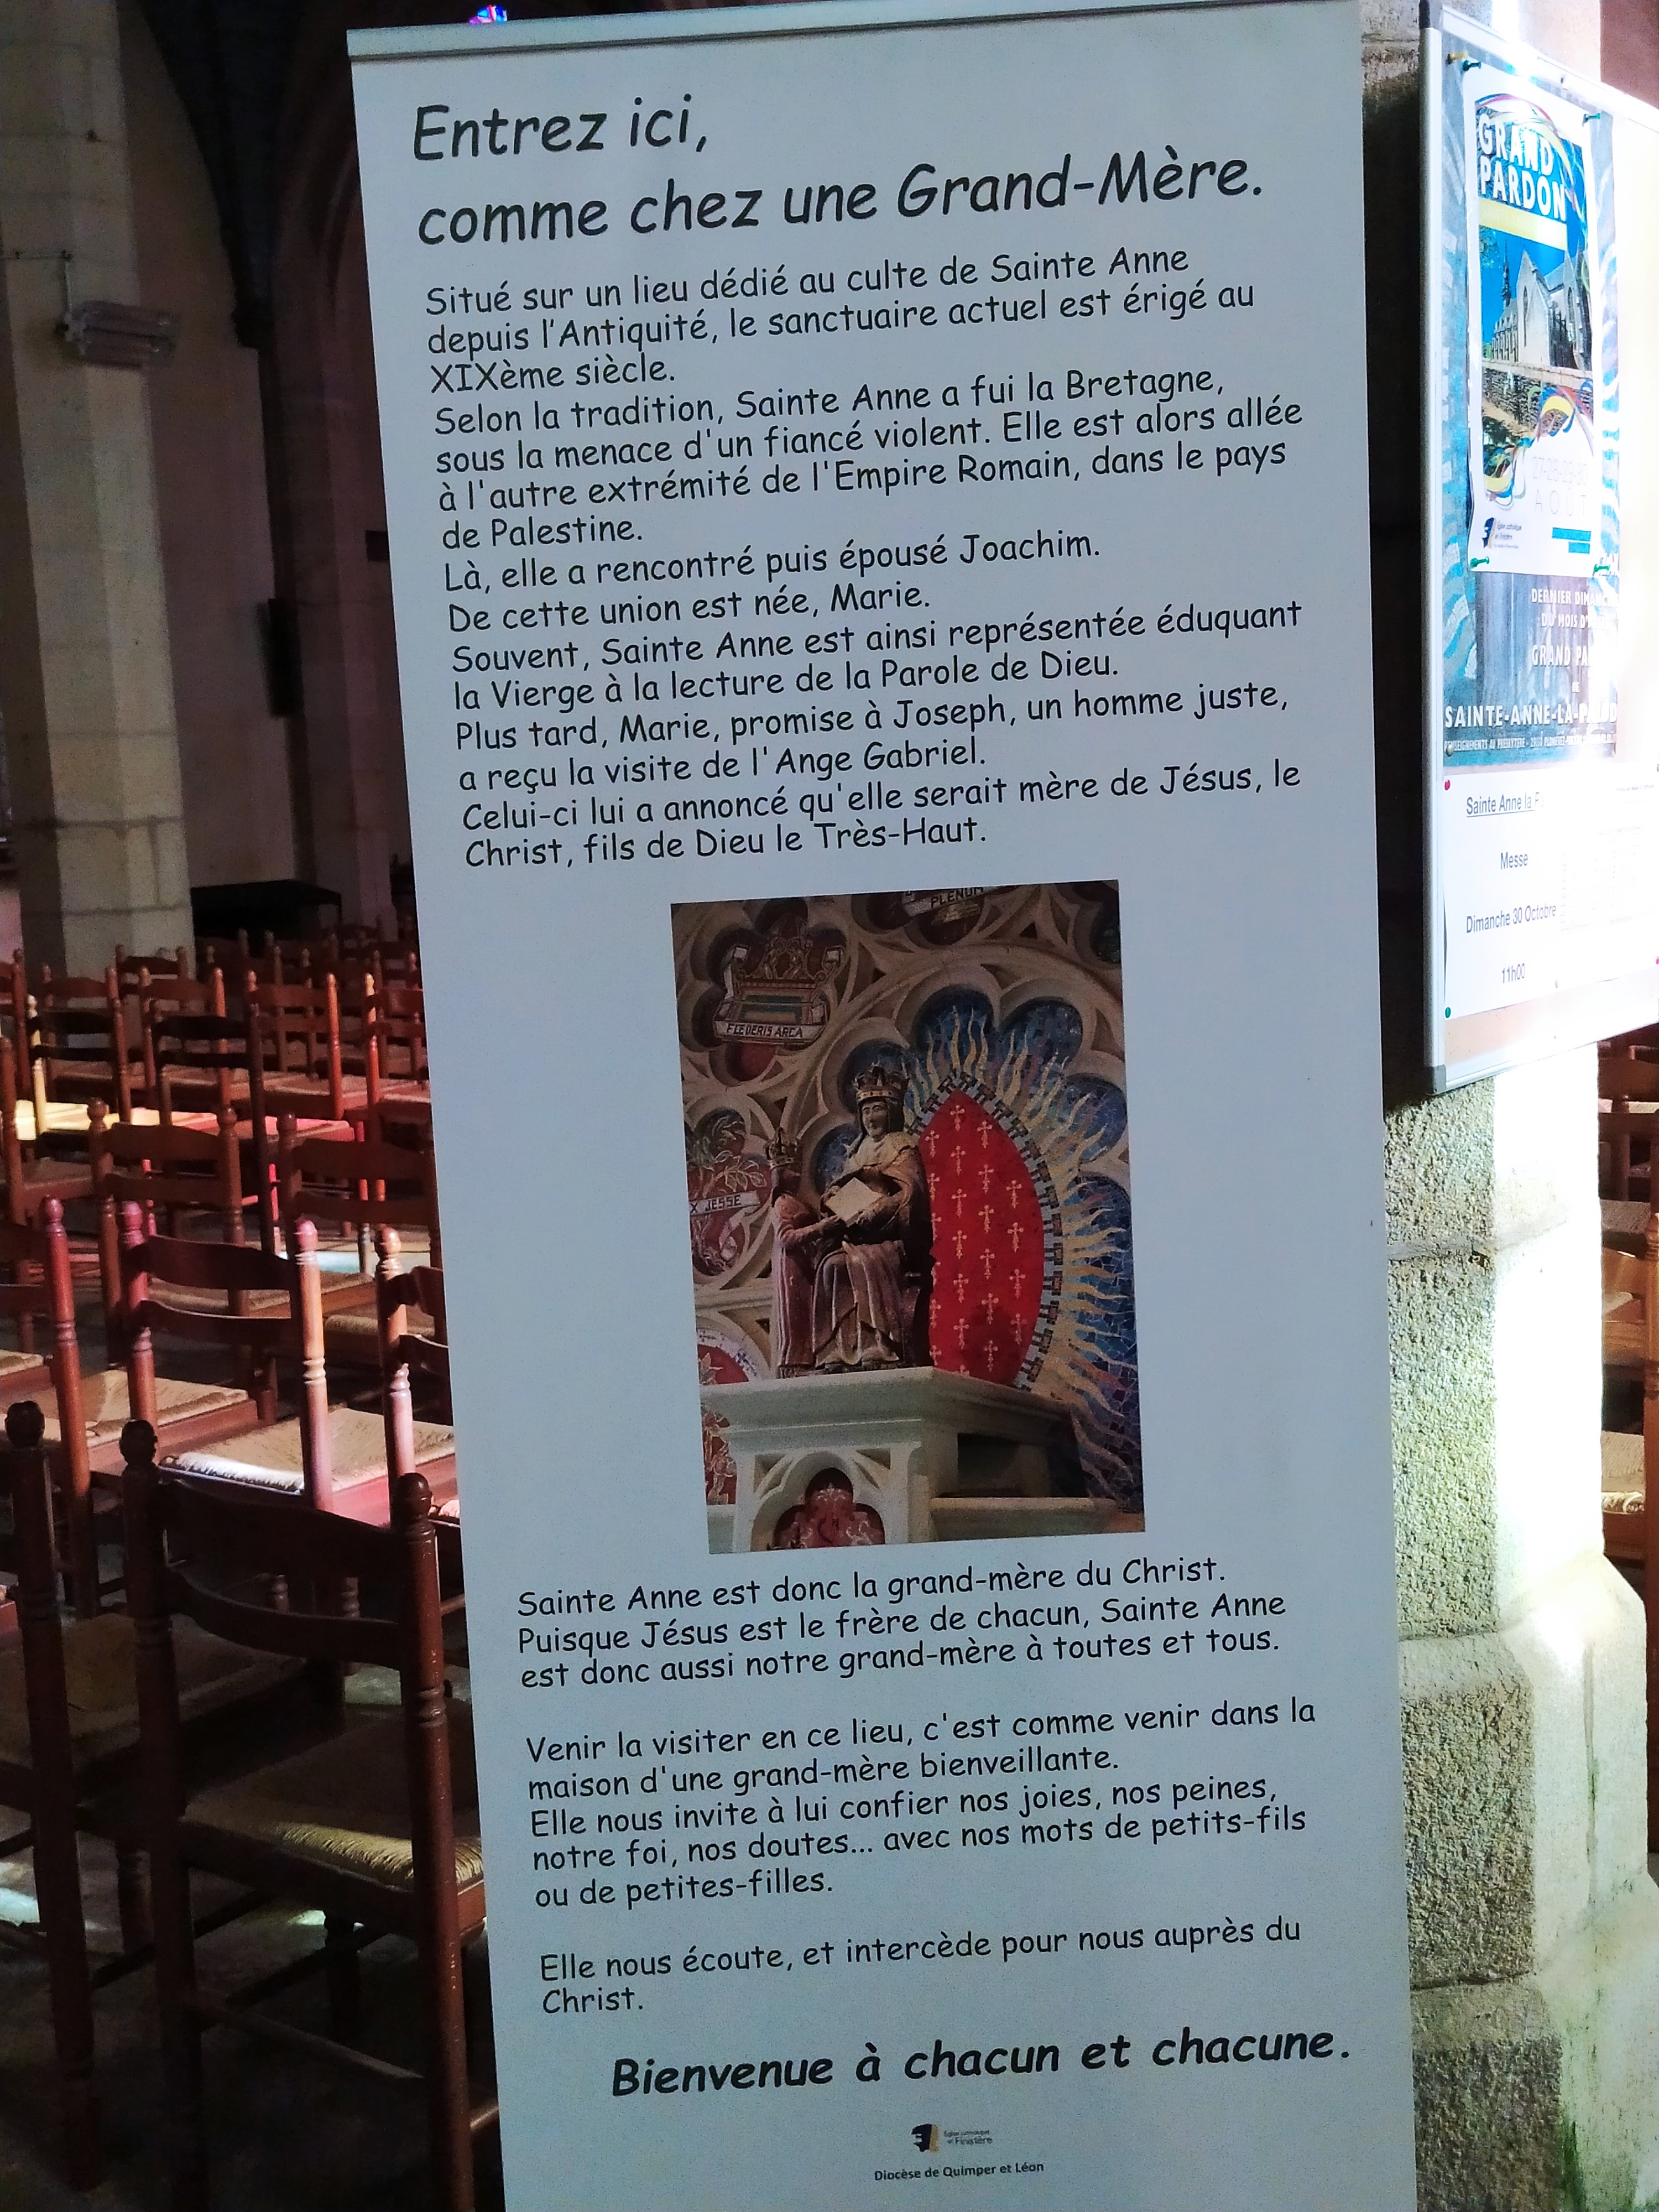 Entrez ici,
comme chez une Grand-Mère.
Situé sur un lieu dédié au culte de Sainte Anne
depuis l'Antiquité, le sanctuaire actuel est érigé au
XIXème siècle.
Selon la tradition, Sainte Anne a fui la Bretagne,
sous la menace d'un fiancé violent. Elle est alors allée
à l'autre extrémité de l'Empire Romain, dans le pays
de Palestine.
Là, elle a rencontré puis épousé Joachim.
De cette union est née, Marie.
Souvent, Sainte Anne est ainsi représentée éduquant
la Vierge à la lecture de la Parole de Dieu.
Plus tard, Marie, promise à Joseph, un homme juste,
a reçu la visite de l'Ange Gabriel.
Celui-ci lui a annoncé qu'elle serait mère de Jésus, le
Christ, fils de Dieu le Très-Haut.
PLENUM
FŒDERIS ARCA
X JESSE
Sainte Anne est donc la grand-mère du Christ.
Puisque Jésus est le frère de chacun, Sainte Anne
est donc aussi notre grand-mère à toutes et tous.
Venir la visiter en ce lieu, c'est comme venir dans la
maison d'une grand-mère bienveillante.
Elle nous invite à lui confier nos joies, nos peines,
notre foi, nos doutes... avec nos mots de petits-fils
ou de petites-filles.
Elle nous écoute, et intercède pour nous auprès du
Christ.
Bienvenue à chacun et chacune.
Église catholique
en Finistère
Diocèse de Quimper et Léon
GRAND
PARDON
AOUT
Église catholique
en Finistère
DERNIER
DU MOIS
GRAND
DE
SAINTE-ANNE-LA-PALUD
Sainte Anne la P
Messe
Dimanche 30 Octobre
11h00